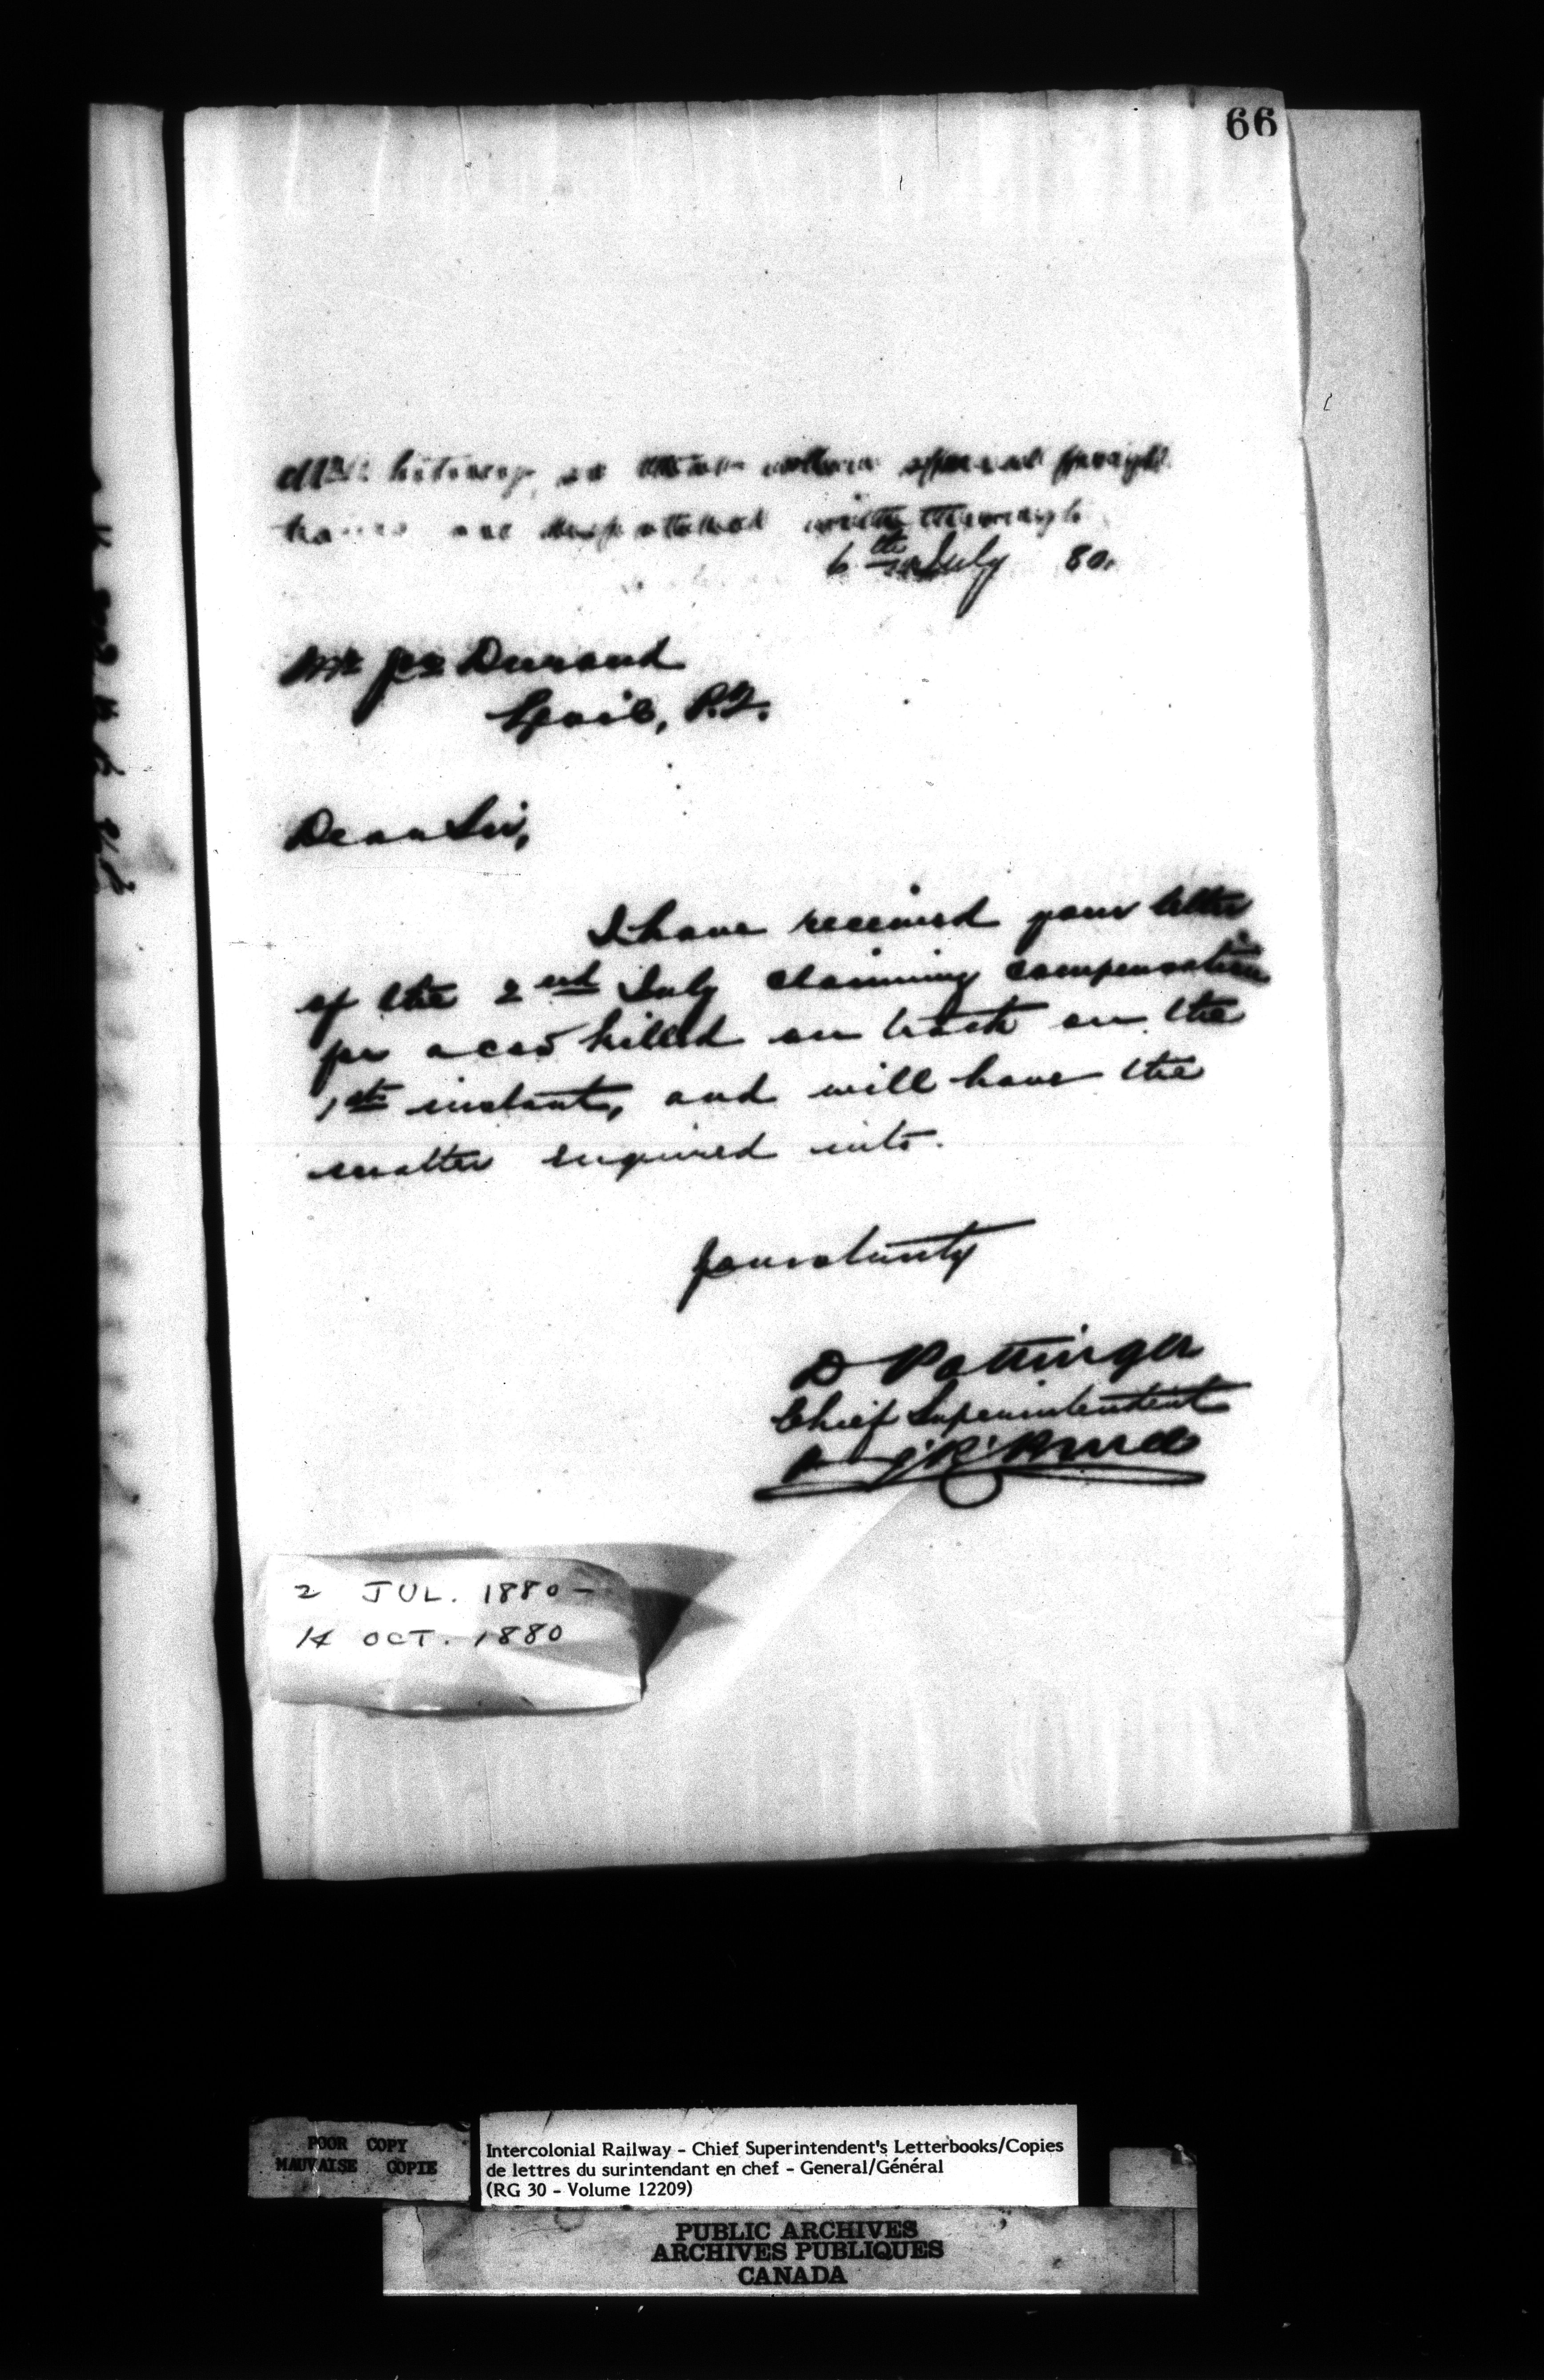 66
6th July 80.
Mr Jos Durand
P.Q.
Dear Sir,
I have received your letter
of the 2nd July claiming compensation
for a cow killed on track on the
1st instant, and will have the
matter enquired into.
Yours truly
D Pottinger
Chief Superintendent
2 JUL. 1880 -
14 OCT. 1880
POOR COPY
MAUVAISE COPIE
Intercolonial Railway - Chief Superintendent's Letterbooks/Copies
de lettres du surintendant en chef - General/Général
(RG 30 - Volume 12209)
PUBLIC ARCHIVES
ARCHIVES PUBLIQUES
CANADA